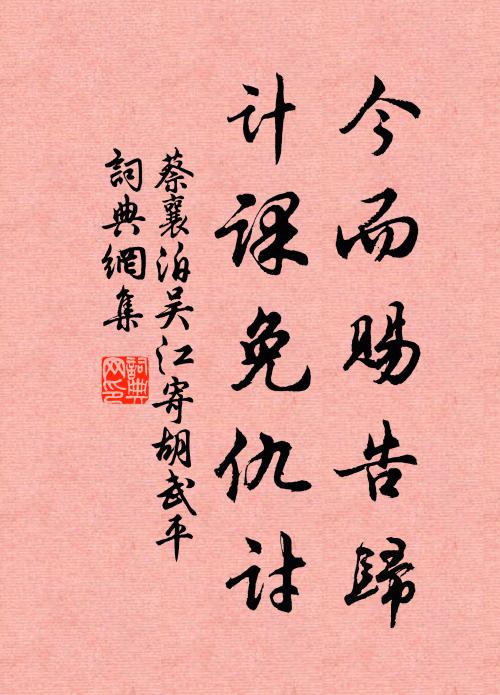 今而賜告歸
計課免仇討
蔡襄泊吴江寄胡武平
詞典網集
詞典
网印